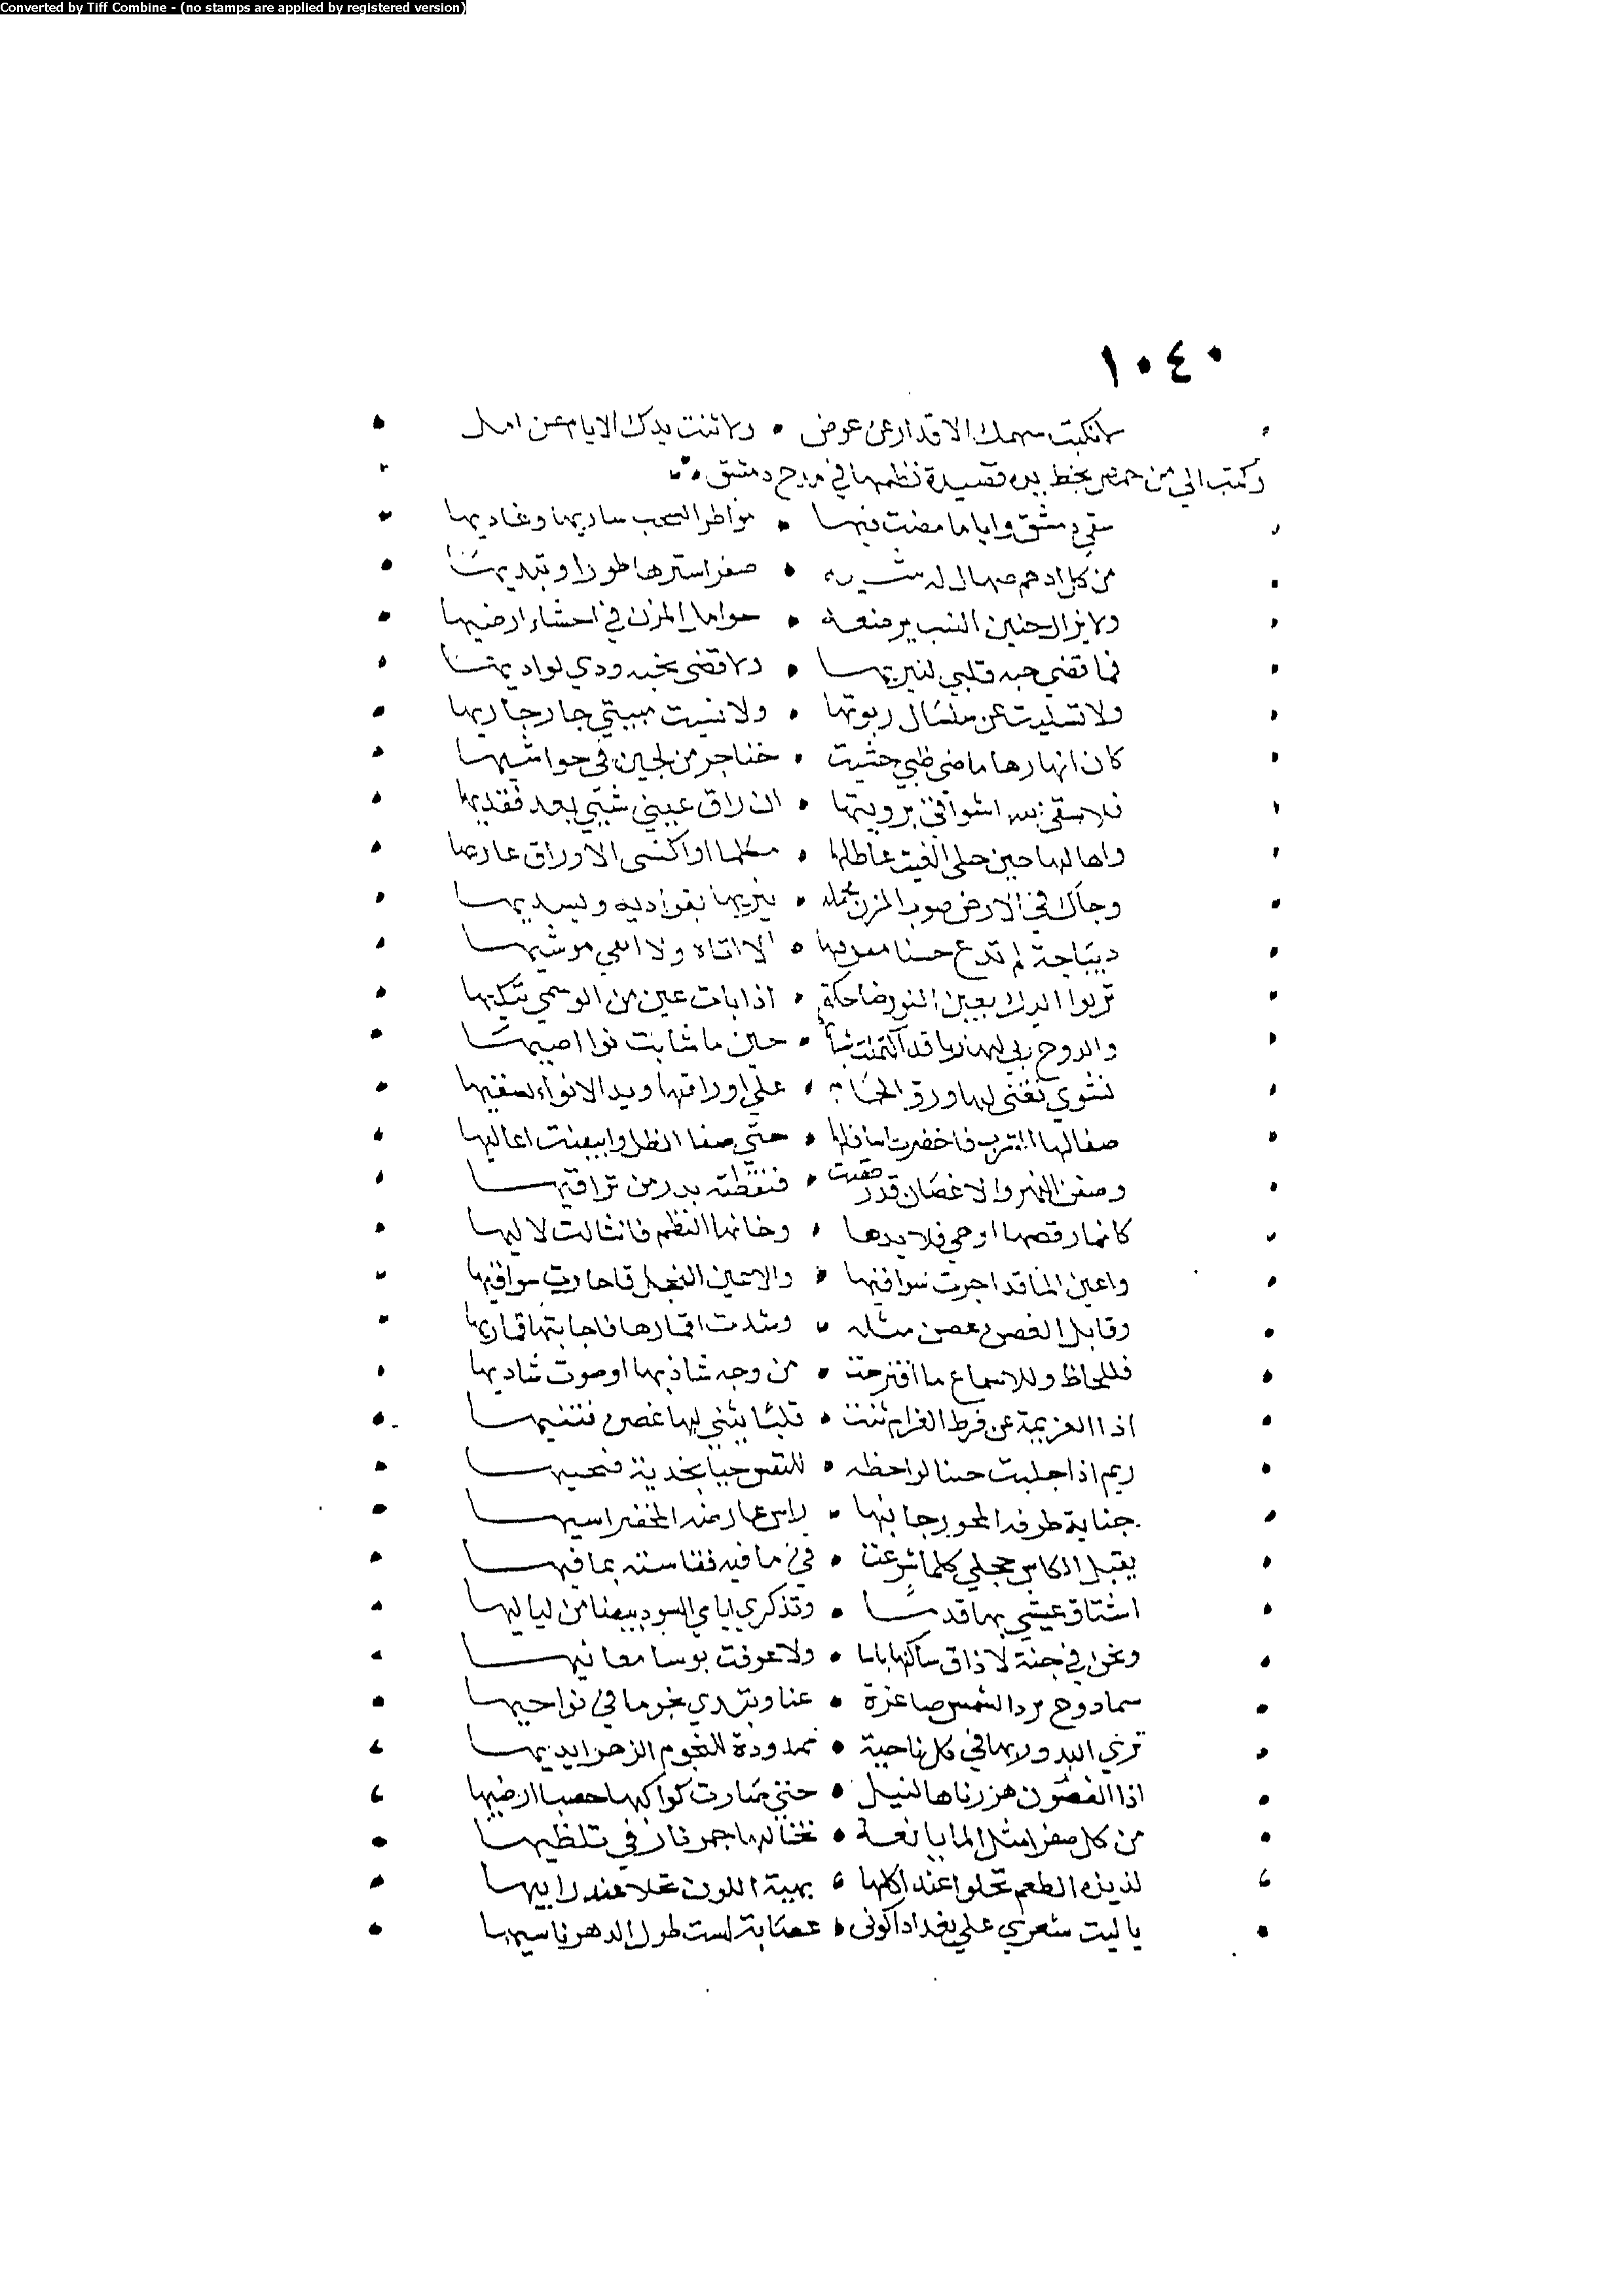 Converted by Tiff Combine - (no stamps are applied by registered version)
١٠٤٠
لانكبت سهمك الاقدار عن عوض • ولا ثنت يدك الايام عن امل
وكتب الي من حمص بخط يده قصيدة نظمها في مدح دمشق
سقى دمشق واياما مضت فيها • مواطر السحب ساريها وغاديها
من كل ادهم صهال له شيه • صفرا سترها طورا وتبديها
ولا يزال جنين النبت يرضعه • حوامل المزن في احشاء ارضيها
فما قضى حبه قلبي لنيربها • ولا قضى نحبه ودي لواديها
ولا تسليت عن سلسال ربوتها • ولا نسيت مبيتي جار جاريها
كان انهارها ماضي ظبي حشيت • خناجر من لجين في حواشيها
فلا سقى الله اشواقي برويتها • ان راق عيني شيي بعد فقديها
واها لها حين حلى الغيث عاطلها • مكللا واكتسى الاوراق عاريها
وحاك في الارض صوب المزن مخمله • ينيرها بغواديه ويسديها
ديباجة لم تدع حسنا مفوفها • الا اتاه ولا ابقى موشيها
ترنوا اليك بعين النور ضاحكة • اذا باتت عين من الوسمي تبكيها
والدوح ربي لها ريا قد اكتملت شبا • حين ما شابت نواصيها
نشوي تغني لها ورق الحمام • على اوراقها ويد الانواء تسقيها
صفا لها الشرب فاخضرت اسافلها • حتى صفا الظل وابيضت اعاليها
وصفق النهر والاغصان قد رقصت • فنقطته بدر من تراقيها
كانما رقصها اوهي قلايدها • وخانها النظم فانثالت لاليها
واعين الما قد اجرت سواقيها • والاعين النجل قد جارت سواقيها
وقابل الغصن غصن مثله • وشدت اقمارها فاجابتها قماريها
فللحاظ وللاسماع ما اقترحت • من وجه شادنها او صوت شاديها
اذا العزيمة عن فرط الغرام ثنت • قلبا يثني لها غصن تثنيها
ريم اذا جلبت حينا لواحظه • للنفس حيا بخديه فيحييها
جناية طرفه المحور جانيها • راس عارضه المخضر اسيها
يقبل الكاس خجلي كلما شرعت • في ما فيه فقاسته بما فيها
اشتاق عيشي بها قدما • وتذكرني ايامي السود بيضا من لياليها
ونحن في جنة لا ذاق ساكنها باسا • ولا عرفت بوسا معانيها
سما دوح ترد الشمس صاغرة • عنا وتبدي نجوما في نواحيها
ترى البدور بها في كل ناحية • ممدودة للنجوم الزهر ايديها
اذا الغصون هززناها لنيل • جني صارت كواكبها حصبا ارضيها
من كل صفرا مثل الما يانعة • تخالها جمر نار في تلظيها
لذيذه الطعم تحلوا عند اكلها • بهية اللون تحلا عند راييها
يا ليت شعري على بغداد اكوني • عصابة لست طول الدهر ناسيها